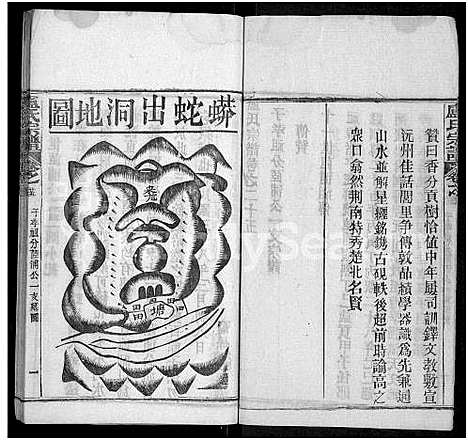 盧氏宗譜
贊曰香分貢樹恰值中年屢司訓鐸文教敷宣
沅州佳話閭里爭傳敦品績學器識爲先兼通
山水並解星躔銘鐫古硯軼後超前時論高之
衆口翕然荆南特秀楚北名賢
蟒蛇出洞地圖
塘
田
一